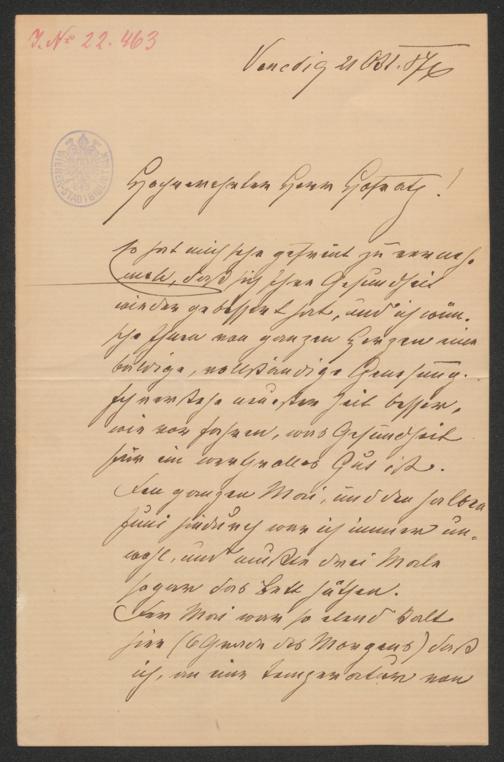 J. No 22.463
Venedig 21 Okt. 87
Hochverehrter Herr Hofrath!
Es hat mich sehr gefreut zu verneh-
men, daß sich Ihre Gesundheit
wieder gebessert hat, und ich wün-
sche Ihnen von ganzem Herzen eine
baldige, vollständige Genesung.
Ich verstehe neuester Zeit besser,
wie vor Jahren, was Gesundheit
für ein werthvolles Gut ist.
Den ganzen Mai, und den halben
Juni hindurch war ich immer un-
wohl, und mußte drei Male
sogar das Bett hüthen.
Der Mai war so elend kalt
hier (6 Grade des Morgens) daß
ich, an eine Temperatur von